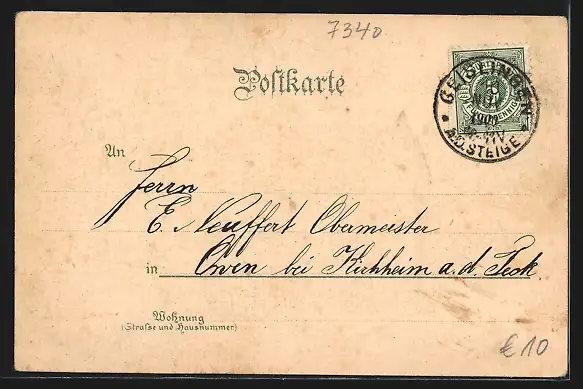 7340
Postkarte
GEISLINGEN
A.D. STEIGE
An
Herrn
E. Neuffert Obermeister
in Owen bei Kirchheim a. d. Teck.
Wohnung
(Strasse und Hausnummer)
€10